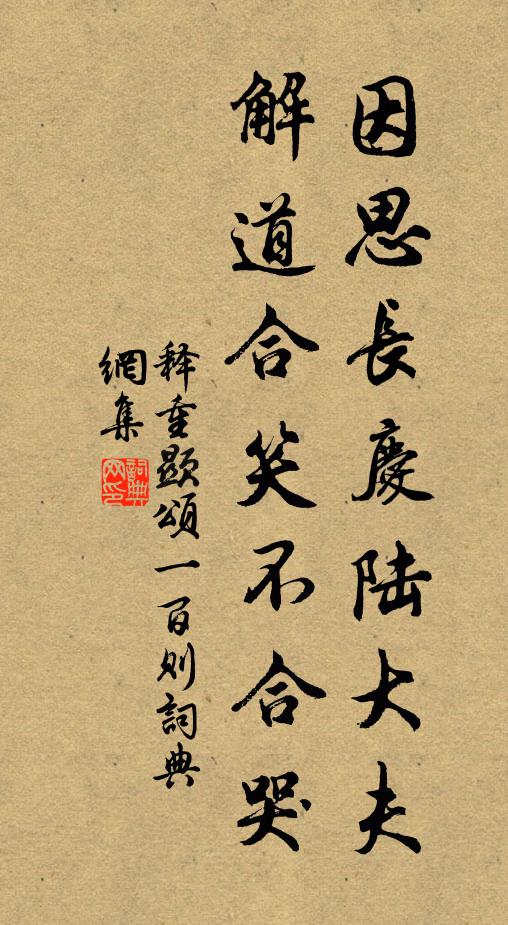 因思長慶陸大夫
解道合笑不合哭
释重顯頌一百则詞典
網集
詞典網印